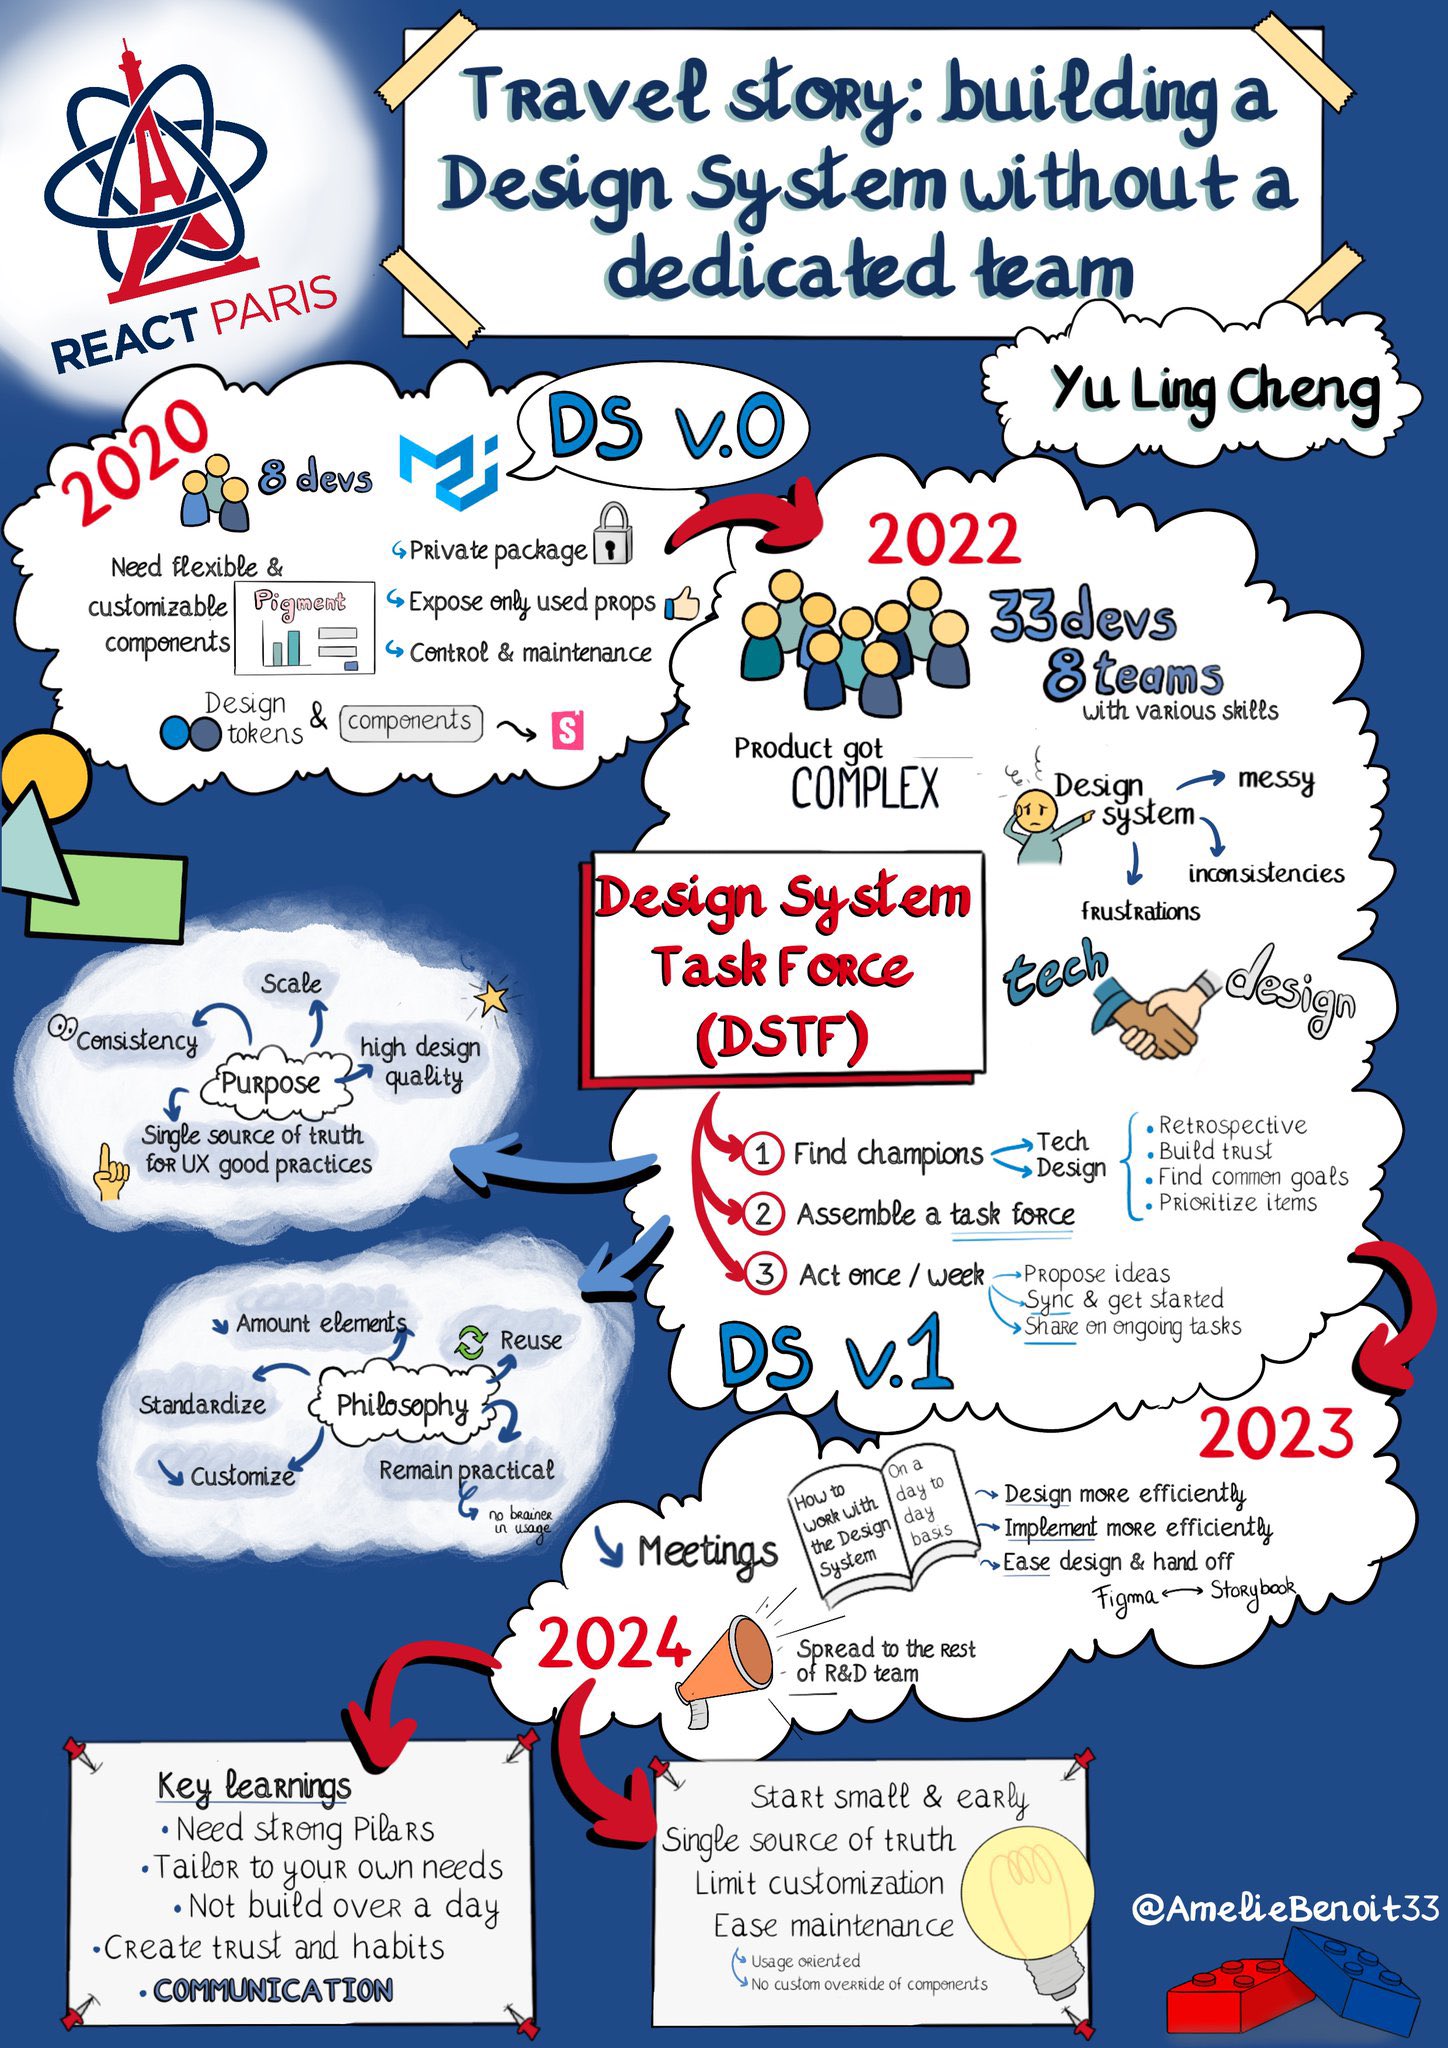 REACT PARIS
Travel story: building a
Design System without a
dedicated team
Yu Ling Cheng
2020
8 devs
DS v.0
Need flexible &
customizable
components
Pigment
Private package
Expose only used props
Control & maintenance
Design
tokens
&
components
S
2022
33 devs
8 teams
with various skills
Product got
COMPLEX
Design
system
messy
inconsistencies
frustrations
tech
design
Design System
Task Force
(DSTF)
1 Find champions
Tech
Design
• Retrospective
• Build trust
• Find common goals
• Prioritize items
2 Assemble a task force
3 Act once / week
Propose ideas
Sync & get started
Share on ongoing tasks
DS v.1
Purpose
Scale
Consistency
high design
quality
Single source of truth
for UX good practices
Philosophy
Amount elements
Reuse
Standardize
Customize
Remain practical
no brainer
in usage
2023
Meetings
How to
work with
the Design
System
On a
day to
day
basis
Design more efficiently
Implement more efficiently
Ease design & hand off
Figma Storybook
2024
Spread to the rest
of R&D team
Key learnings
• Need strong Pilars
• Tailor to your own needs
• Not build over a day
• Create trust and habits
• COMMUNICATION
Start small & early
Single source of truth
Limit customization
Ease maintenance
Usage oriented
No custom override of components
@AmelieBenoit33